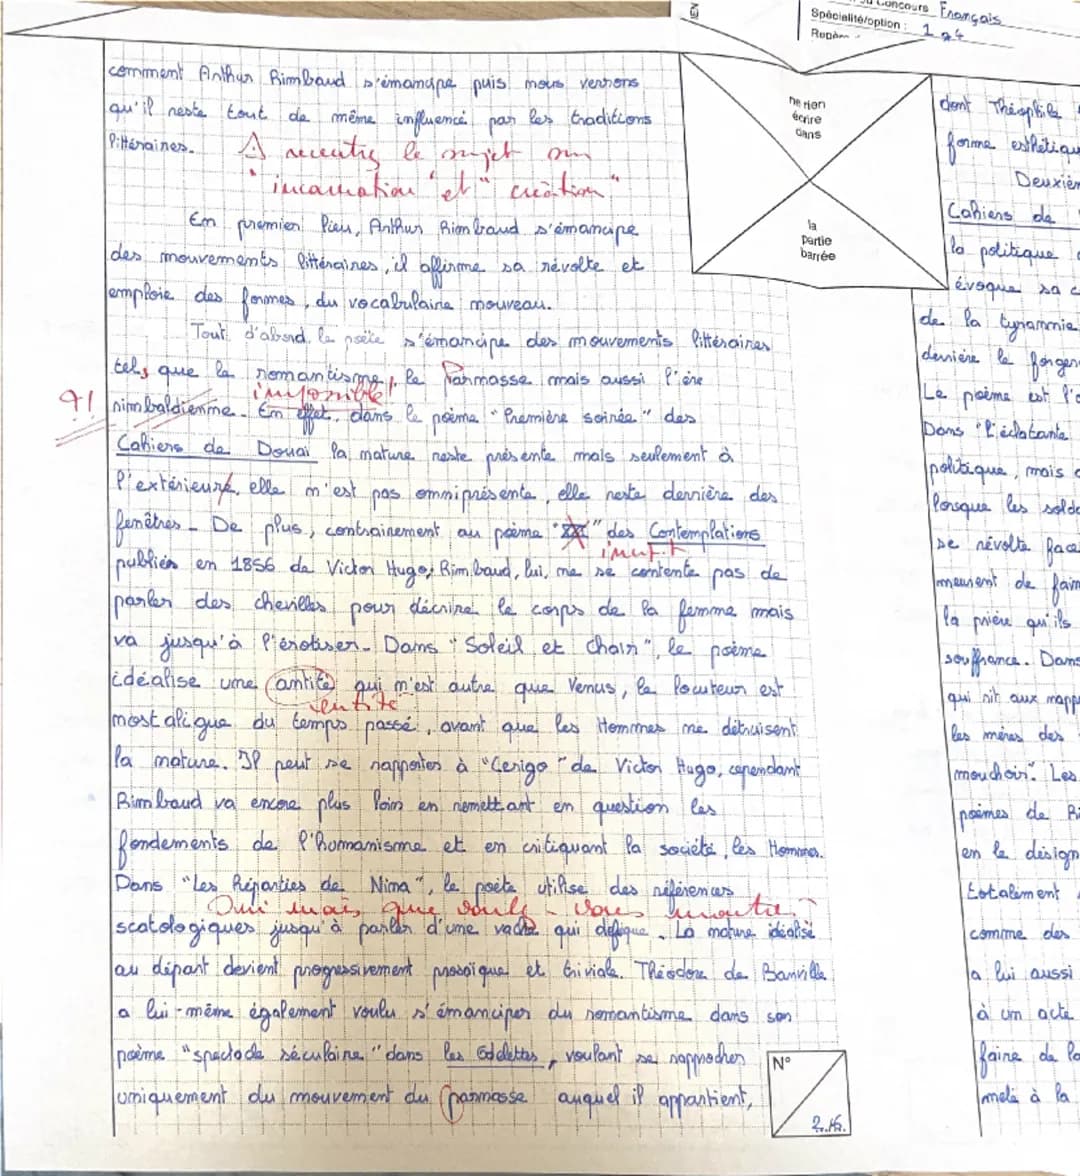 Concours Français
Spécialité/option : 1 24
Repère
ne rien
écrire
dans
la
partie
barrée
comment Arthur Rimbaud s'émancipe puis nous verrons
qu'il reste tout de même influencé par les traditions
littéraires.
A recentrer le sujet sur
"incarnation" et "création"
En premier lieu, Arthur Rimbaud s'émancipe
des mouvements littéraires, il affirme sa révolte et
emploie des formes, du vocabulaire nouveau.
Tout d'abord, le poète s'émancipe des mouvements littéraires
tels que le romantisme, le Parnasse mais aussi l'ère
impossible!
?!
rimbaldienne. En effet, dans le poème "Première soirée" des
Cahiers de Douai la nature reste présente mais seulement à
l'extérieure, elle n'est pas omniprésente, elle reste derrière des
fenêtres. De plus, contrairement au poème "XXI" des Contemplations
inutile
publiés en 1856 de Victor Hugo, Rimbaud, lui, ne se contente pas de
parler des chevilles pour décrire le corps de la femme mais
va jusqu'à l'érotiser. Dans "Soleil et Chair", le poème
idéalise une antité qui n'est autre que Venus, le locuteur est
entité
nostalique du temps passé, avant que les Hommes ne détruisent
la nature. Il peut se rapporter à "Cerigo" de Victor Hugo, cependant
Rimbaud va encore plus loin en remettant en question les
fondements de l'humanisme et en critiquant la société, les Hommes.
Dans "Les Réparties de Nina", le poète utilise des références
Oui mais que voulez-vous montrer?
scatologiques jusqu'à parler d'une vache qui défèque. La nature idéalisé
au départ devient progressivement prosaïque et triviale. Théodore de Banville
a lui-même également voulu s'émanciper du romantisme dans son
poème "spectacle séculaire" dans les Odelettes, voulant se rapprocher
uniquement du mouvement du parnasse auquel il appartient,
N°
2./6.
dont Théophile
forme esthétique
Deuxièm
Cahiers de
la politique
évoque sa c
de la tyrannie
derrière le forgeron
Le poème est l'o
Dans "L'éclatante
politique, mais
lorsque les solda
se révolte face
meurent de faim
la prière qu'ils
souffrance. Dans
qui rit aux napp
les mères des
mouchoir". Les
poèmes de Ri
en le désign
totalement
comme des
a lui aussi
à un acte
faire de la
mêlé à la